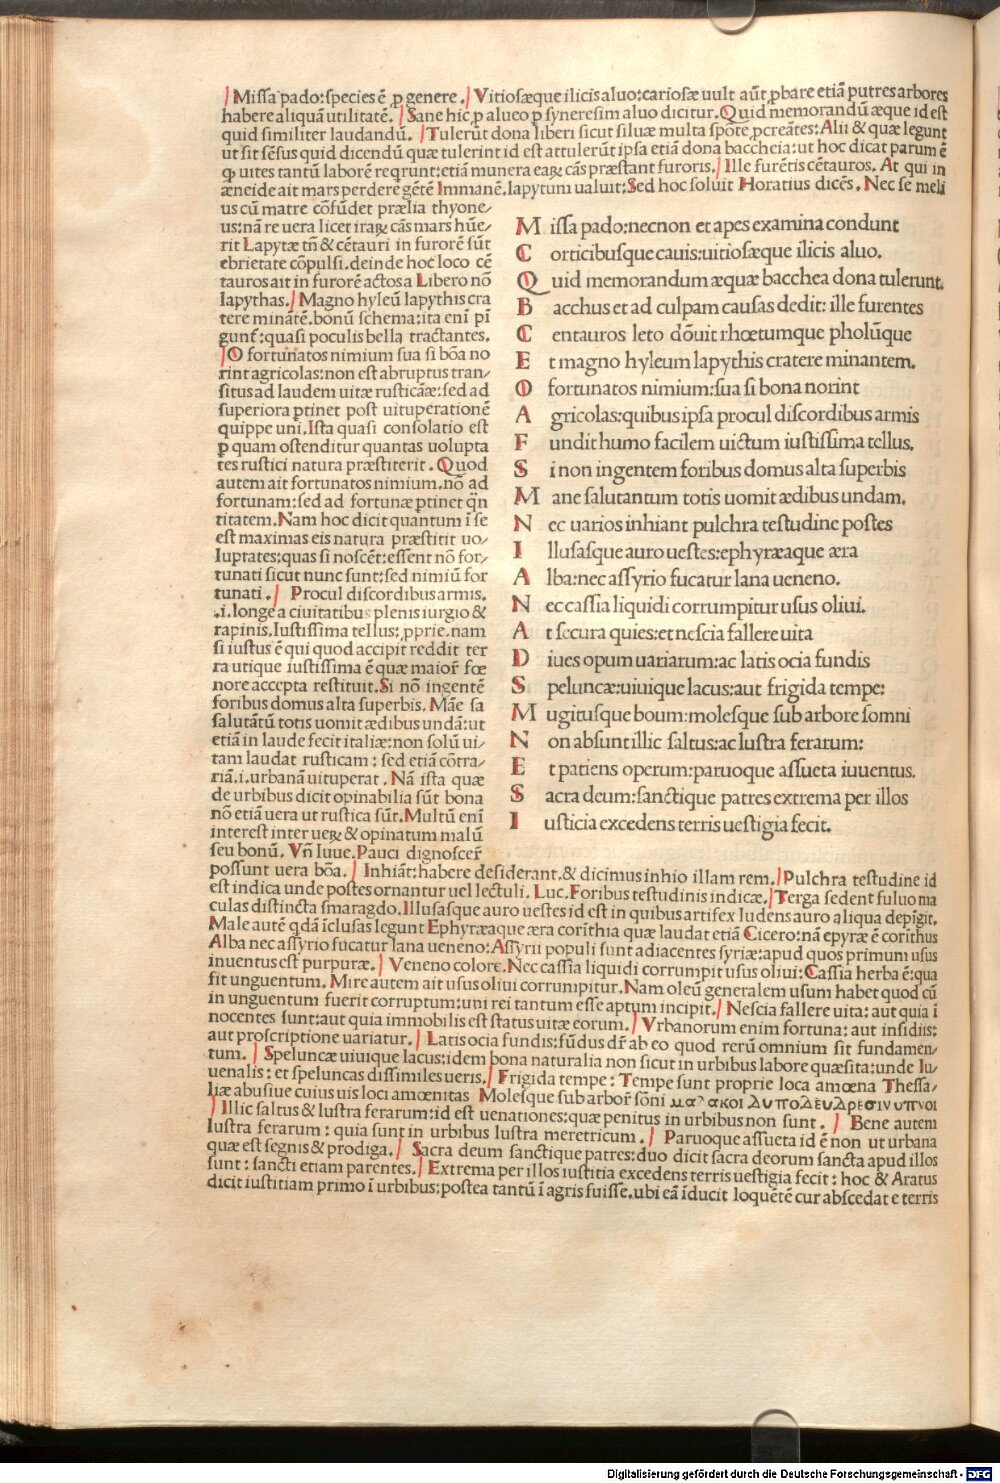 Missa pado:species ē ꝓ genere. Vitiosæque ilicis aluo:cariosæ uult aūt ꝓbare etiā putres arbores
habere aliquā utilitatē. Sane hic ꝓ alueo ꝑ syneresim aluo dicitur. Quid memorandū æque id est
quid similiter laudandū. Tulerūt dona liberi sicut siluæ multa spōte ꝓcreātes: Alii & quæ legunt
ut sit sēsus quid dicendū quæ tulerint id est attulerūt ipsa etiā dona baccheia:ut hoc dicat parum ē
ꝙ uites tantū laborē reqrunt:etiā munera eaꝝ cās præstant furoris. Ille furētis cētauros. At qui in
æneide ait mars perdere gētē Immanē lapytum ualuit: Sed hoc soluit Horatius dicēs. Nec se meli
us cū matre cōfūdet prælia thyone/
us:nā re uera licet iraꝝ cās mars hūe/
rit Lapytæ tñ & cētauri in furorē sūt
ebrietate cōpulsi.deinde hoc loco cē
tauros ait in furorē actos a Libero nō
lapythas. Magno hyleū lapythis cra
tere minātē.bonū schema:ita enī pī
gunt:quasi poculis bella tractantes.
O fortunatos nimium sua si bōa no
rint agricolas:non est abruptus tran/
situs ad laudem uitæ rusticāæ:sed ad
superiora ꝑtinet post uituperationē
quippe uni. Ista quasi consolatio est
ꝑ quam ostenditur quantas uolupta
tes rustici natura præstiterit. Quod
autem ait fortunatos nimium.nō ad
fortunam:sed ad fortunæ ꝑtinet q̄n
titatem. Nam hoc dicit quantum ī se
est maximas eis natura præstitit uo/
luptates:quas si noscēt:essent nō for/
tunati sicut nunc sunt:sed nimiū for
tunati. Procul discordibus armis.
.i.longe a ciuitatibus plenis iurgio &
rapinis. Iustissima tellus:ꝓprie.nam
si iustus ē qui quod accipit reddit ter
ra utique iustissima ē quæ maior̄ fœ
nore accepta restituit. Si nō ingentē
foribus domus alta superbis. Māe sa
salutātū totis uomit ædibus undā:ut
etiā in laude fecit italiæ:non solū ui/
tam laudat rusticam : sed etiā cōtra/
riā.i.urbanā uituperat. Nā ista quæ
de urbibus dicit opinabilia sūt bona
nō etiā uera ut rustica sūt. Multū enī
interest inter ueꝝ & opinatum malū
seu bonū. Vñ Iuue. Pauci dignoscer̄
M issa pado:necnon et apes examina condunt
C orticibusque cauis:uitiosæque ilicis aluo.
Q uid memorandum æquæ bacchea dona tulerunt.
B acchus et ad culpam causas dedit: ille furentes
C entauros leto dōuit rhœtumque pholūque
E t magno hyleum lapythis cratere minantem.
O fortunatos nimium:sua si bona norint
A gricolas:quibus ipsa procul discordibus armis
F undit humo facilem uictum iustissima tellus.
S i non ingentem foribus domus alta superbis
M ane salutantum totis uomit ædibus undam.
N ec uarios inhiant pulchra testudine postes
I llusasque auro uestes:ephyræaque æra
A lba:nec assyrio fucatur lana ueneno.
N ec cassia liquidi corrumpitur usus oliui.
A t secura quies:et nescia fallere uita
D iues opum uariarum:ac latis ocia fundis
S peluncæ:uiuique lacus:aut frigida tempe:
M ugitusque boum:molesque sub arbore somni
N on absunt illic saltus:ac lustra ferarum:
E t patiens operum:paruoque assueta iuuentus.
S acra deum:sanctique patres extrema per illos
I usticia excedens terris uestigia fecit.
possunt uera bōa. Inhiāt:habere desiderant.& dicimus inhio illam rem. Pulchra testudine id
est indica unde postes ornantur uel lectuli. Luc. Foribus testudinis indicæ. Terga sedent fuluo ma
culas distincta smaragdo. Illusasque auro uestes id est in quibus artifex ludens auro aliqua depīgit.
Male autē q̄dā īclusas legunt Ephyræaque æra corīthia quæ laudat etiā Cicero:nā epyræ ē corīthus
Alba nec assyrio fucatur lana ueneno: Assyrii populi sunt adiacentes syriæ:apud quos primum usus
inuentus est purpuræ. Veneno colore. Nec cassia liquidi corrumpit usus oliui: Cassia herba ē:qua
fit unguentum. Mire autem ait usus oliui corrumpitur. Nam oleū generalem usum habet quod cū
in unguentum fuerit corruptum:uni rei tantum esse aptum incipit. Nescia fallere uita: aut quia ī
nocentes sunt:aut quia immobilis est status uitæ eorum. Vrbanorum enim fortuna: aut insidiis:
aut proscriptione uariatur. Latis ocia fundis:fūdus dr̄ ab eo quod rerū omnium sit fundamen/
tum. Speluncæ uiuique lacus:idem bona naturalia non sicut in urbibus labore quæsita:unde Iu/
uenalis: et speluncas dissimiles ueris. Frigida tempe: Tempe sunt proprie loca amœna Thessa/
liæ abusiue cuiusuis loci amœnitas Molesque sub arbor̄ sōni μαλακοι λυπολευλρεσιν υπνοι
Illic saltus & lustra ferarum:id est uenationes:quæ penitus in urbibus non sunt. Bene autem
lustra ferarum : quia sunt in urbibus lustra meretricum. Paruoque assueta id ē non ut urbana
quæ est segnis & prodiga. Sacra deum sanctique patres:duo dicit sacra deorum sancta apud illos
sunt : sancti etiam parentes. Extrema per illos iustitia excedens terris uestigia fecit : hoc & Aratus
dicit iustitiam primo ī urbibus:postea tantū ī agris fuisse.ubi eā īducit loquētē cur abscedat e terris
Digitalisierung gefördert durch die Deutsche Forschungsgemeinschaft - DFG